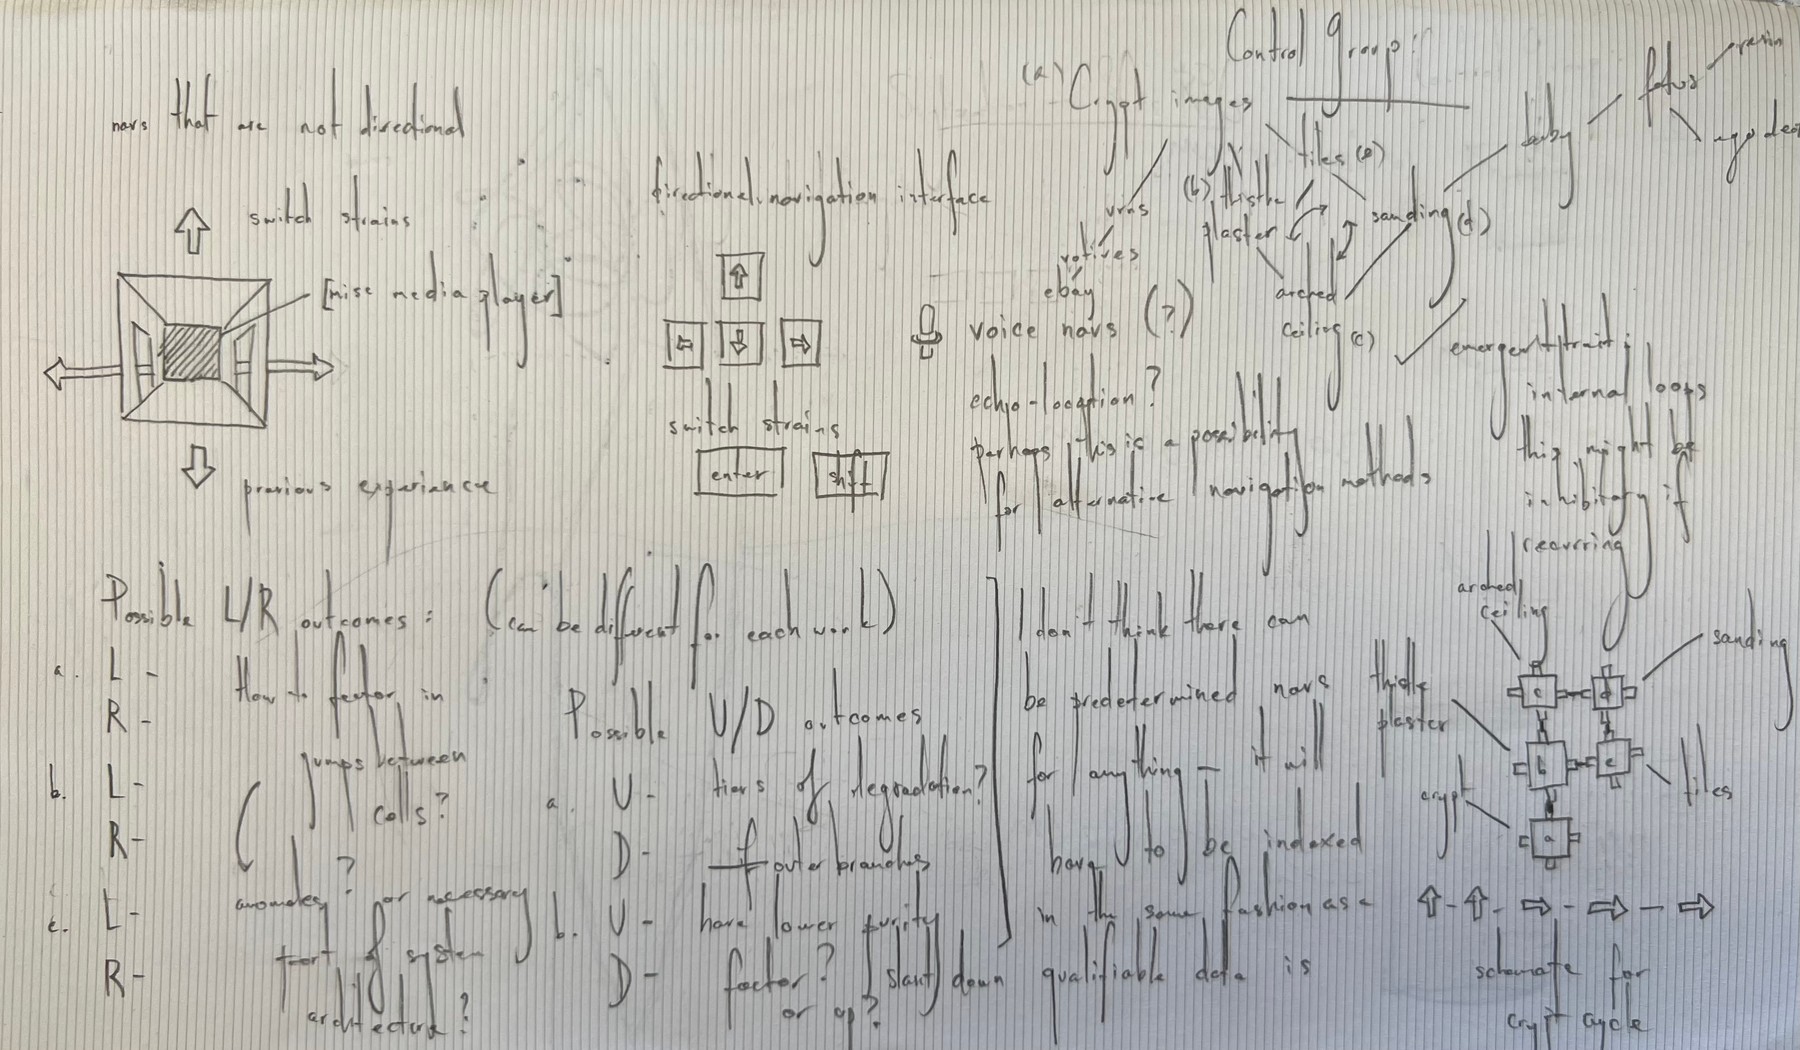 navs that are not directional
switch strains
[mise media player]
previous experience
directional navigation interface
switch strains
enter
shift
voice navs (?)
echo-location?
perhaps this is a possibility
for alternative navigation methods
Control group:
(a) Crypt images
tiles (e)
(b) thistle
plaster
sanding (d)
arched
ceiling (c)
urns
votives
ebay
baby
fetus
resin
emergent trait:
internal loops
this might be
inhibitory if
recurring
Possible L/R outcomes: (can be different for each work)
a. L -
R -
b. L -
R -
c. L -
R -
How to factor in
jumps between
cells?
anomaley? or necessary
part of system
architecture?
Possible U/D outcomes
a. U - tiers of degradation?
D - outer branches
b. U - have lower purity
D - factor? slant down
or up?
I don't think there can
be predetermined navs
for anything — it will
have to be indexed
in the same fashion as a
qualifiable data is
arched
ceiling
sanding
thistle
plaster
tiles
crypt
c
d
b
e
a
schemate for
crypt cycle